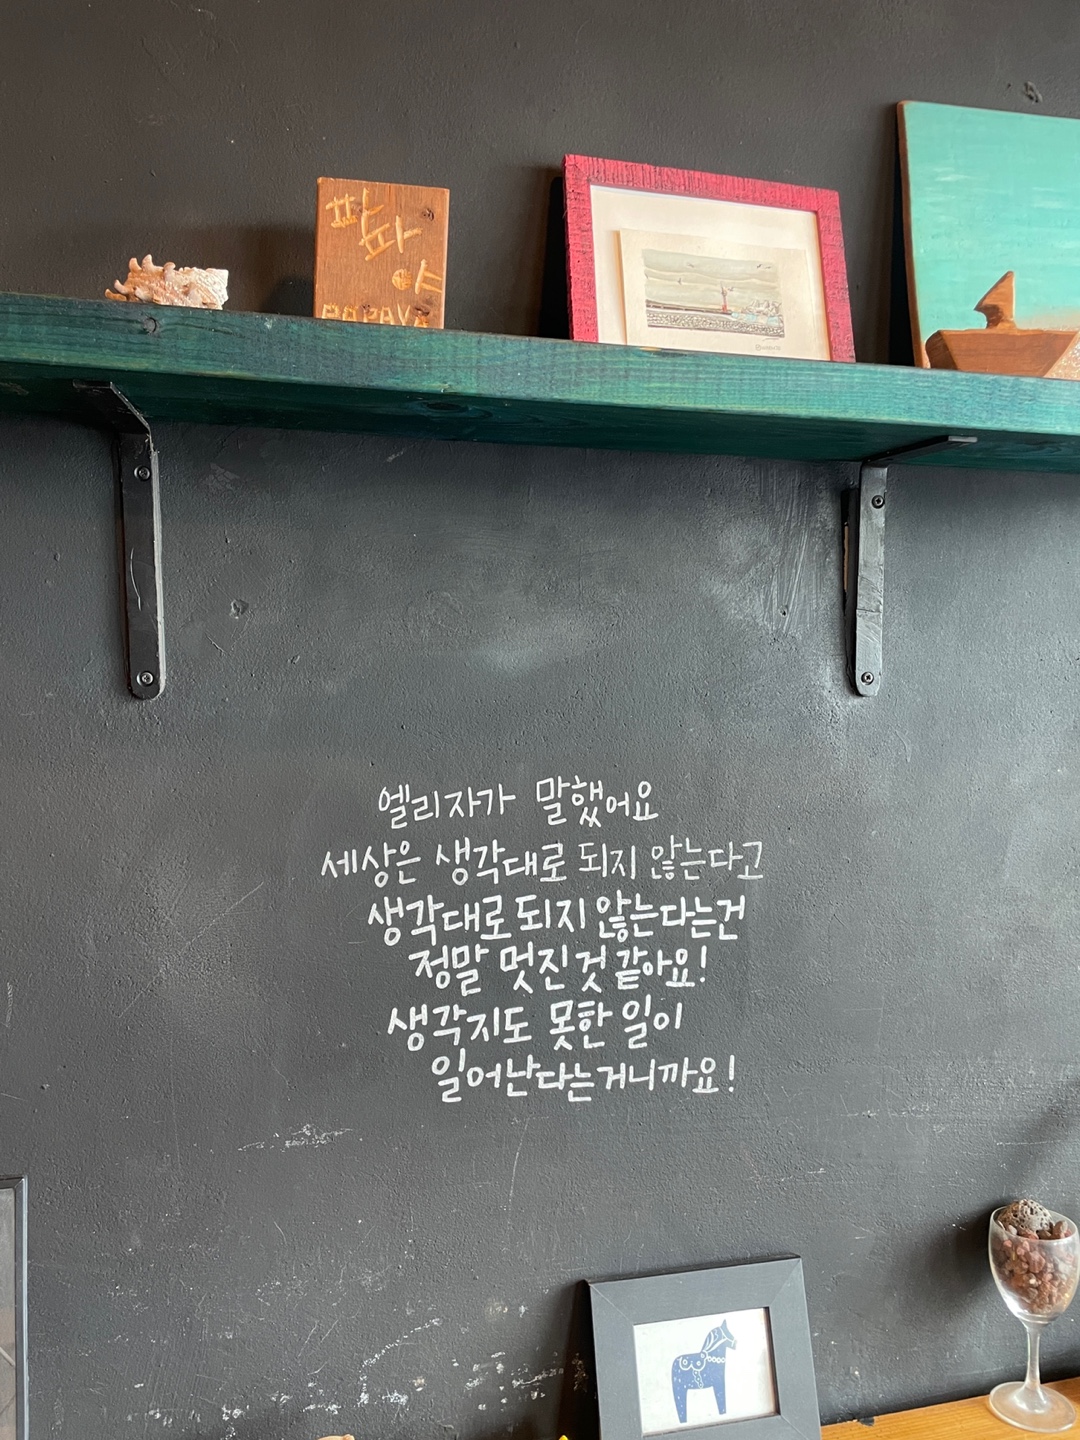 파
파
야
PAPAYA
엘리자가 말했어요
세상은 생각대로 되지 않는다고
생각대로 되지 않는다는건
정말 멋진 것 같아요!
생각지도 못한 일이
일어난다는거니까요!